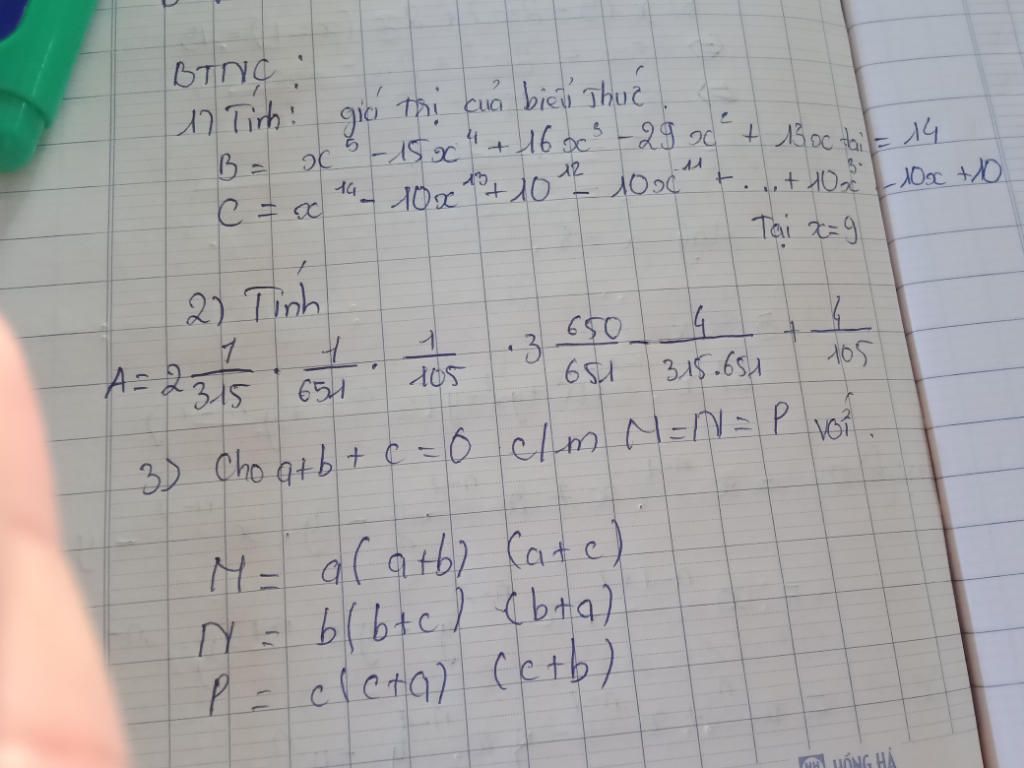 BTNC:
1) Tính: giá trị của biểu thức.
B = x⁵ - 15x⁴ + 16x³ - 29x² + 13x tại = 14
C = x¹⁴ - 10x¹³ + 10¹² - 10x¹¹ + ... + 10x³ - 10x + 10
Tại x=9
2) Tính
A = 2 1/315 . 1/651 . 1/105 . 3 650/651 - 4/315.651 + 4/105
3) Cho a+b + c = 0 c/m M = N = P với.
M = a(a+b) (a+c)
N = b(b+c) (b+a)
P = c(c+a) (c+b)
HỒNG HÀ